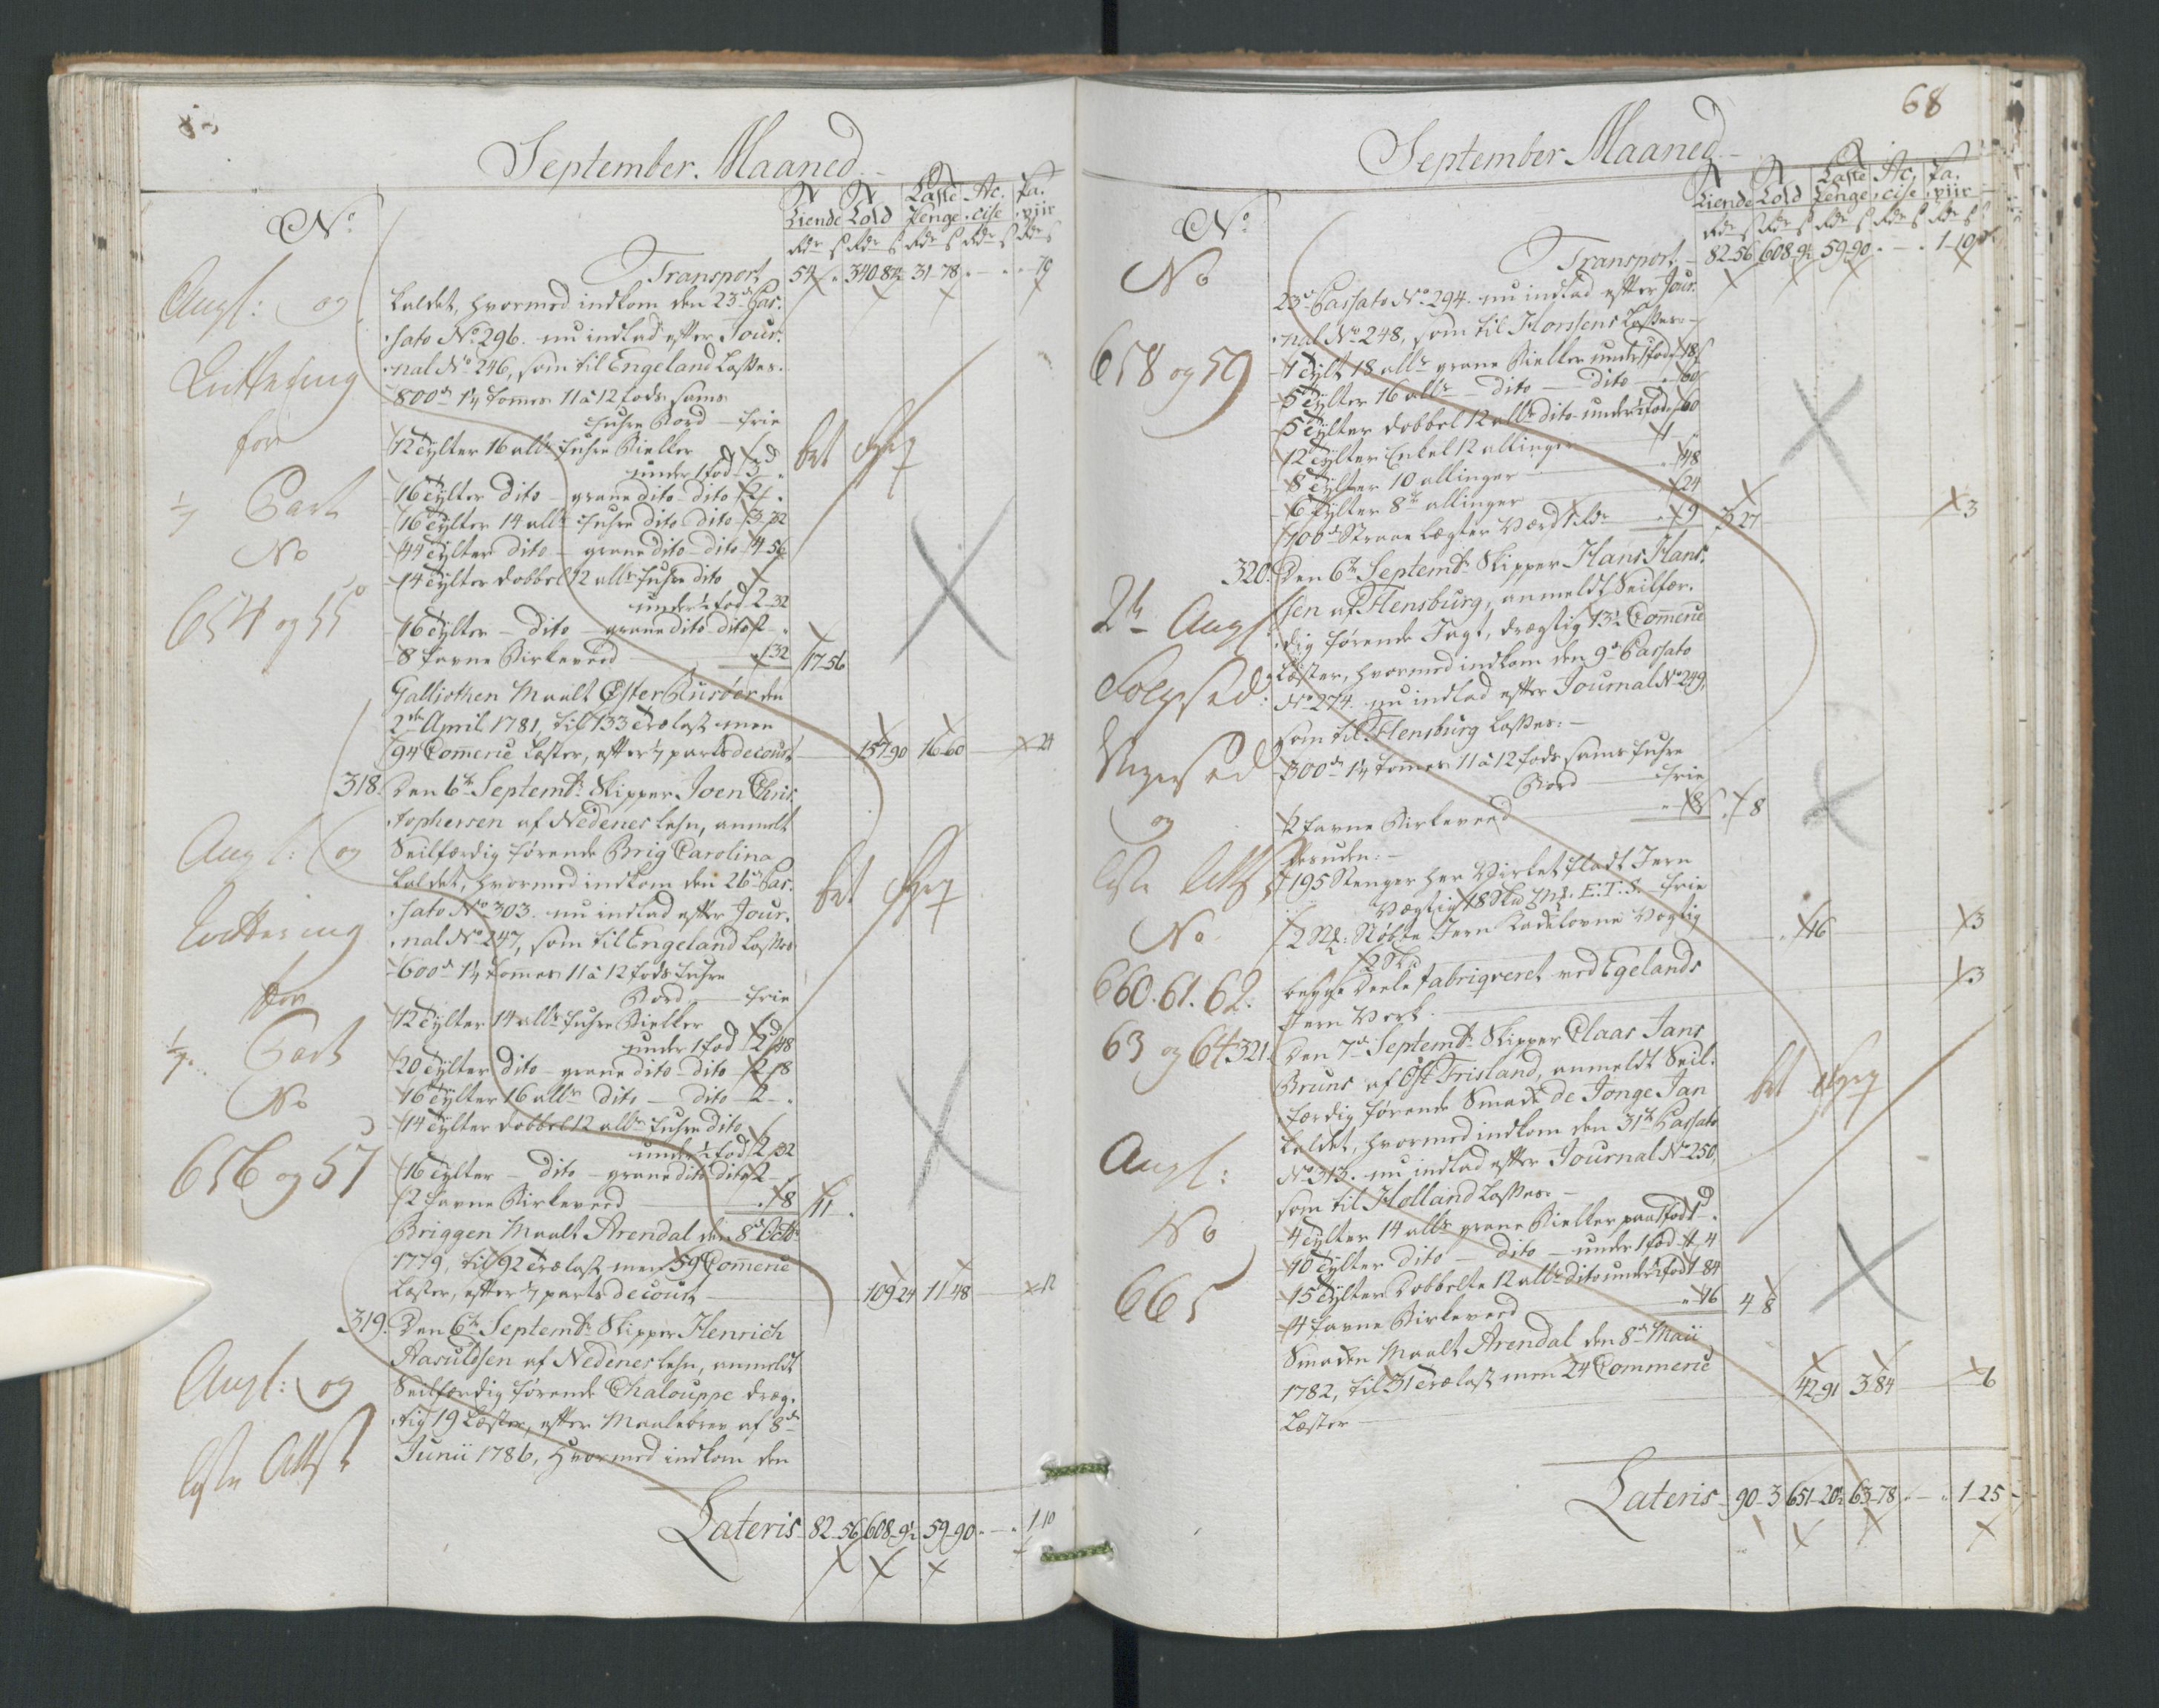 September. Maaned.
No
Tiende Told Laste Penge Ac,cise Pa,piir
Rdr s Rdr s Rdr s Rdr s Rdr s
Transport 54 " 340.84½ 31-78. - . . -70
Angl: og
Kaldet, hvormed indkom den 23de Pas-
sato No 296. nu indlad efter Jour-
nal No 246, som til Engeland Losses.
Qvittering
800de 1¼ tommer 11 a 12 fods sams
fuhre Bord - frie
for
12 Tylter 16 alln fuhre Bielker
under 1 fod 3 "
1/7 Part
16 Tylter dito - grane dito - dito 2 "
16 Tylter 14 alln fuhre dito dito 3-32
No
44 Tylter dito - grane dito - dito 4-56
14 Tylter dobbel 12 alln fuhre dito
under ½ fod 2-32
654 og 55
16 Tylter - dito - grane dito dito 2 - "
8 favne Birkeveed " 32 17-56
bet
Galliothen Maalt Øster Riisöer den
2den April 1781, til 133 Trælast men
94 Commerce Læster, efter 1/7 parts decourt 157-90 16-60 - 24
318. Den 6te Septembr Skipper Joen Chris-
tophersen af Nedenes Lehn, anmelt
Angl: og
Seilfærdig førende Brig Carolina
Kaldet, hvormed indkom den 26de Pas-
bet
sato No 303. nu indlad efter Jour-
Qvittering
nal No 247, som til Engeland Losses
600de 1¼ tommer 11 a 12 fods fuhre
Bord - frie
for
12 Tylter 14 alln fuhre Bielker
under 1 fod 2-48
1/7. Part
20 Tylter dito - grane dito - dito 2-8
16 Tylter 16 alln dito - dito 2 - "
No
14 Tylter dobbel 12 alln fuhre dito
under ½ fod 2-32
656 og 57
16 Tylter - dito - grane dito dito 2 -
2 favne Birkeveed " 8 11 "
Briggen Maalt Arendal den 8de Octbr
1779, til 92 Trælast men 59 Commerce
Læster, efter 1/7 parts decourt 109-24 11-48 - 12
319. Den 6te Septembr Skipper Henrich
Aasuldsen af Nedenes Lehn, anmeldt
Angl: og
Seilfærdig førende Chalouppe dræg-
tig 19 Læster, efter Maalebrev af 8de
Junii 1786, hvormed indkom den
Attst
Lateris 82-56 608-9½ 59-90 " - " 1-10
68
September Maaned.
No
Tiende Told Laste Penge Ac,cise Pa,piir
Rdr s Rdr s Rdr s Rdr s Rdr s
Transport - 82-56 608-9½ 59-90 . - . 1-10
No
23de Passato No 294. nu indlad efter Jour-
nal No 248, som til Horsens Losses.
658 og 59
1 Tylt 18 alln grane Bielker under 1 fod " 18
5 Tylter 16 alln - dito - dito " 60
5 Tylter dobbel 12 alln dito under ½ fod " 60
12 Tylter Enkel 12 allinger 1 "
8 Tylter 10 allinger " 48
6 Tylter 8te allinger " 24
100de Straae Lægter Værd 1 Rdr " 9 3-27 3
320. Den 6te Septembr Skipper Hans Han-
sen af Flensburg, anmeldt Seilfær-
2de Angl:
dig førende Jagt, drægtig 13½ Commerce
Læster, hvormed indkom den 9de Passato
Tolgsed:
No 274. nu indlad efter Journal No 249,
som til Flensburg Losses: -
300de 1¼ tommer 11 a 12 fods sams fuhre
Bord frie
og
2 favne Birkeveed " 8 " 8
Desuden: -
Attst
195 Stenger her Virket fladt Jern
Vægtig 18 Sk℔ M: E:T:S. frie
No
2 St: Støbte Jern Kakelovne Vægtig
2 Sk℔ " 16 3
660. 61. 62.
begge Deele fabriqveret ved Egelands
Jern Verk. 3
63 og 64
321. Den 7de Septembr Skipper Claas Jans
Bruns af Ost Frisland, anmeldt Seil-
færdig førende Smak de Jonge Jan
bet
Kaldet, hvormed indkom den 31te Passato
Angl:
No 313. nu indlad efter Journal No 250,
som til Holland Losses. -
No
4 Tylter 14 alln grane Bielker paa 1 fod 1 "
10 Tylter dito - dito - under 1 fod 1-4
15 Tylter Dobbelte 12 alln dito under ½ fod 1-84
665
4 favne Birkeveed " 16 4-8
Smaken Maalt Arendal den 8de Maii
1782, til 31 Trælast men 24 Commerce
Læster 42-91 3-84 6
Lateris 90-3 651-20½ 63-78 " - " 1-25